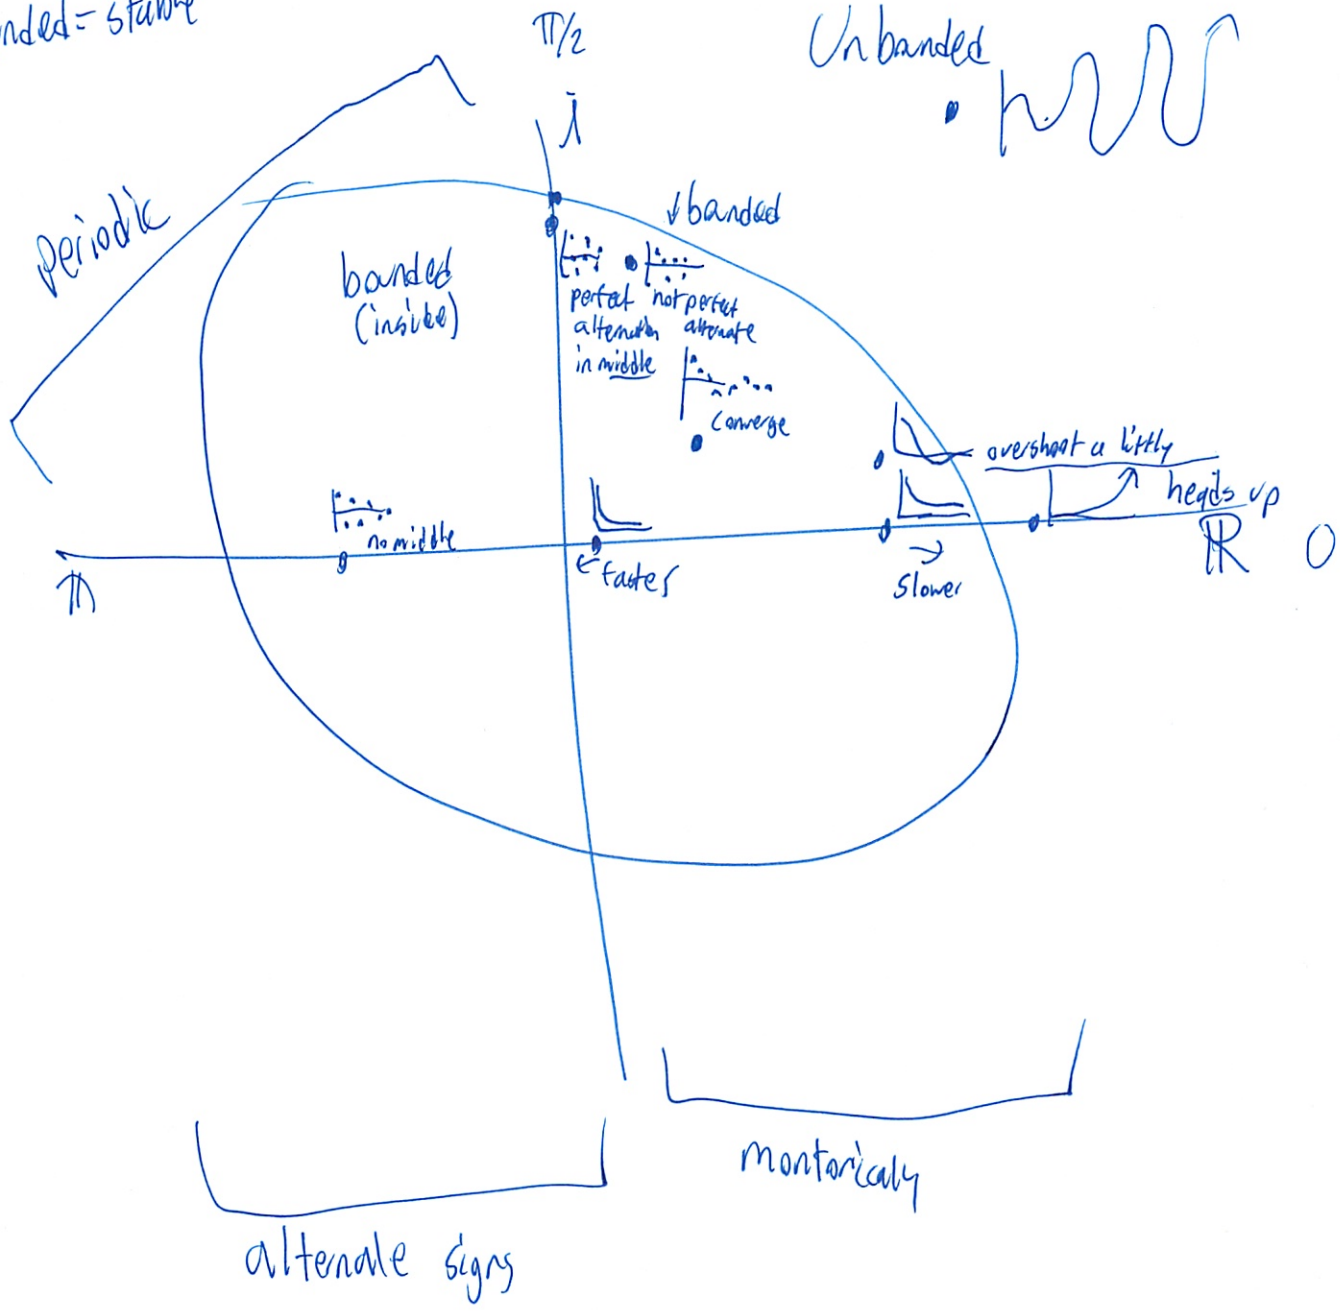 nded = stable
π/2
i
Unbanded
periodic
↓ banded
bounded
(inside)
perfect
alternation
in middle
not perfect
alternate
converge
overshoot a littly
heads up
no middle
← faster
→
slower
π
ℝ
0
montoricaly
alternate signs